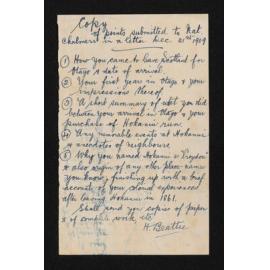 Copy
of points submitted to Nat.
Chalmers in a letter Dec. 21st 1909
① How you came to leave Scotland for
Otago & date of arrival.
② Your first year in Otago & your
impressions thereof
③ A short summary of what you did
between your arrival in Otago & your
purchase of Hokanui run
④ Any memorable events at Hokanui
& anecdotes of neighbours
⑤ Why you named Hokanui & "Croydon"
& also origin of any other place name
you know, finishing up with a brief
account of your island experiences
after leaving Hokanui in 1861.
Shall send you copies of paper
& of complete work, etc
H. Beattie